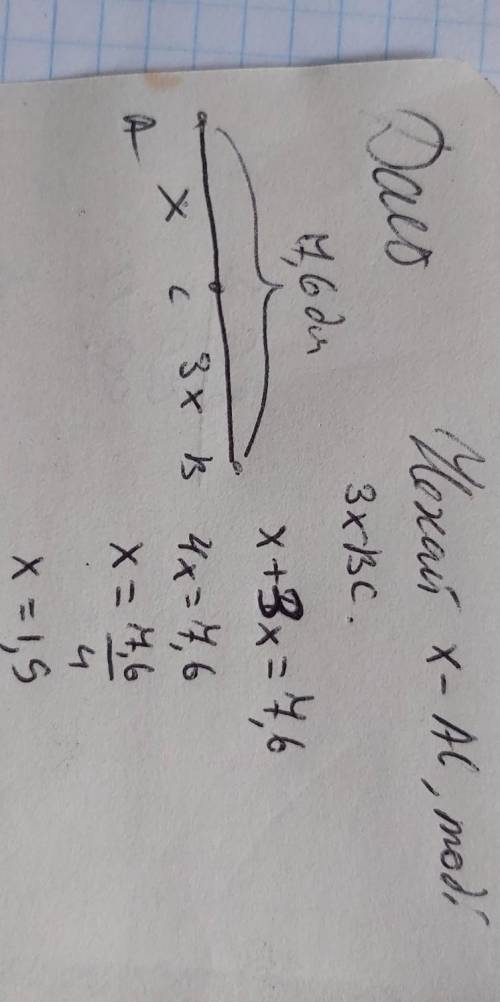 Дано
7,6 дм
A x C 3x B
Нехай x - AC, тоді
3x BC.
x+3x=7,6
4x=7,6
x=7,6/4
x=1,9